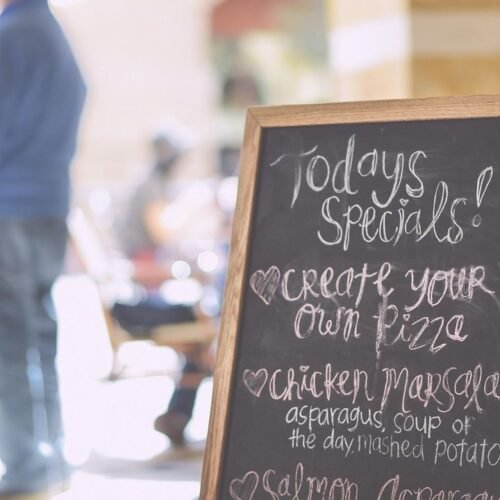 Todays
Specials!
CREATE YOUR
Own Pizza
Chicken Marsala
asparagus, soup of
the day, mashed potato
Salmon